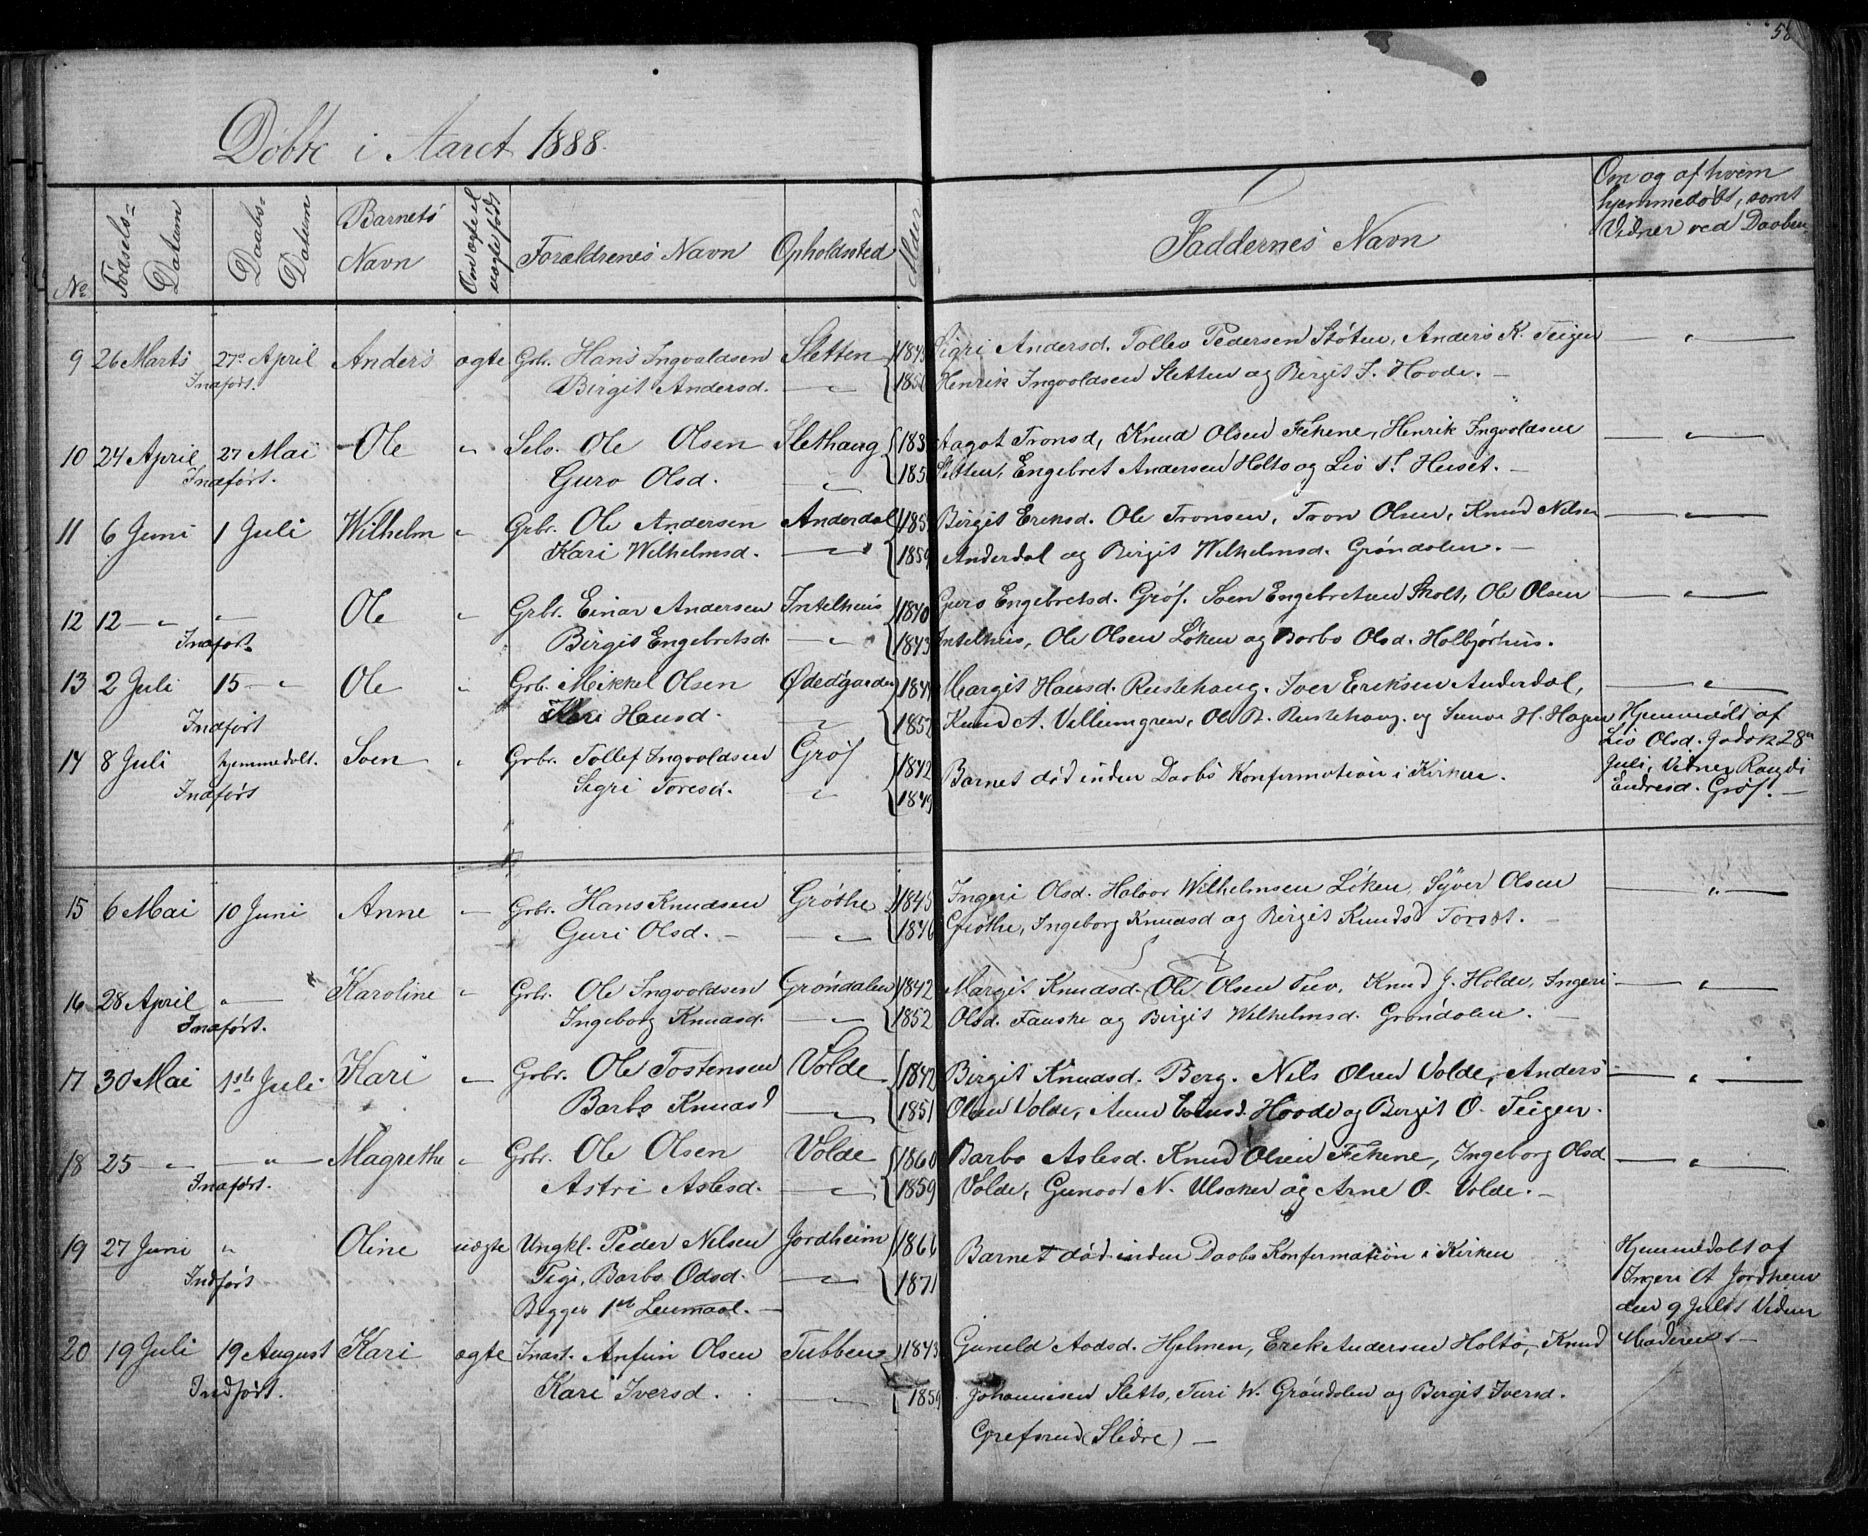 Døbte i Aaret 1888.
No Fødsels= Datum Daabs= Datum Barnets Navn Om ægte el. uægte født Forældrenes Navn Opholdssted Alder Faddernes Navn Om og af hvem hjemmedøbt, samt Vidner ved Daaben
9 26 Marts 27de April Anders ægte Gbr. Hans Ingvaldsen Sletten 1843 Sigri Andersd. Tollev Pedersen Støten, Anders K. Teigen — " —
Indført. Birgit Andersd. — " — Henrik Ingvoldsen Sletten og Birgit Hovde. —
10 24 April 27 Mai Ole " Selv. Ole Olsen Slethaug Aagot Tronsd, Knud Olsen Fekene, Henrik Ingvoldsen — " —
Indført. Guro Olsd. — " — Sletten, Engebret Andersen Holto og Liv Huset. —
11 6 Juni 1 Juli Wilhelm " Gbr. Ole Andersen Anderdal Birgit Eriksd. Ole Tronsen, Tron Olsen, Knud Nilsen — " —
Kari Wilhelmsd. — " — 1859 Anderdal og Birgit Wilhelmsd. Grøndalen. —
12 12 — " — — " — Ole " Gbr. Einar Andersen Intelhus 1840 Guro Engebretsd. Grøf. Sven Engebretsen Skolt, Ole Olsen — " —
Indført. Birgit Engebretsd. — " — 1843 Intelhus, Ole Olsen Løken og Barbo Olsd. Halbjørhus.
13 2 Juli 15 — " Ole " Gbr. Mikkel Olsen Ødegaarden Margit Hansd. Rustehaug. Iver Eriksen Anderdal, — " —
Indført Kari Hansd. " 1852 Knud A. Villumgren, Ole Rustehaug. og H. Hagen Hjemmedøbt af
14 8 Juli hjemmedøbt. Sven " Gbr. Tollef Ingvoldsen Grøf 1842 Barnet død inden Daabs Konfirmation i Kirken. Liv Olsd.
Indført Sigri Toresd. " 1849 Juli, Vidner Randi
Endresd. Grøf. —
15 6 Mai 10 Juni Anne — Gbr. Hans Knudsen Grøthe 1845 Ingeri Olsd. Halvor Wilhelmsen Løken, Syver Olsen — " —
Guri Olsd. — — " — 1846 Grøthe, Ingeborg Knudsd og Birgit Knudsd Torset. —
16 28 April " — Karoline " Gbr. Ole Ingvoldsen Grøndalen 1842 Margit Knudsd. Ole Olsen Tuv, Knud J. Holde, Ingeri — " —
Indført. Ingeborg Knudsd. — " — 1852 Olsd. Fauske og Birgit Wilhelmsd. Grøndalen. —
17 30 Mai 1ste Juli Kari — Gbr. Ole Tostensen Volde 1842 Birgit Knudsd. Berg. Nils Olsen Volde, Anders — " —
Barbo Knudsd — " — 1851 Olsen Volde, Hovde og Birgit O. Teigen.
18 25 — " — — " — Magrethe " Gbr. Ole Olsen Volde 1860 Barbo Aslesd. Knud Olsen Fekene, Ingeborg Olsd — " —
Indført. Astri Aslesd. — " — 1859 Volde, Gunvor N. Ulsaker og Arne O. Volde. —
19 27 Juni " Oline uægte Ungkl. Peder Nilsen Jordheim Barnet død inden Daabs Konfirmation i Kirken Hjemmedøbt af
Indført Pige, Barbo Odsd. — " — 1871 Ingeri A Jordheim
Begges 1ste Leiermaal. — den 9 Juli Vidner
20 19 Juli 19 August Kari ægte Indst. Anfin Olsen Tubben 1843 Gunild Aadsd. Hjelmen, Erik Andersen Holto, Knud Moderen —
Indført. Kari Iversd. — " — 1859 Johannesen Sletto, Turi W. Grøndalen og Birgit Iversd.
Grefsrud (Slidre) —